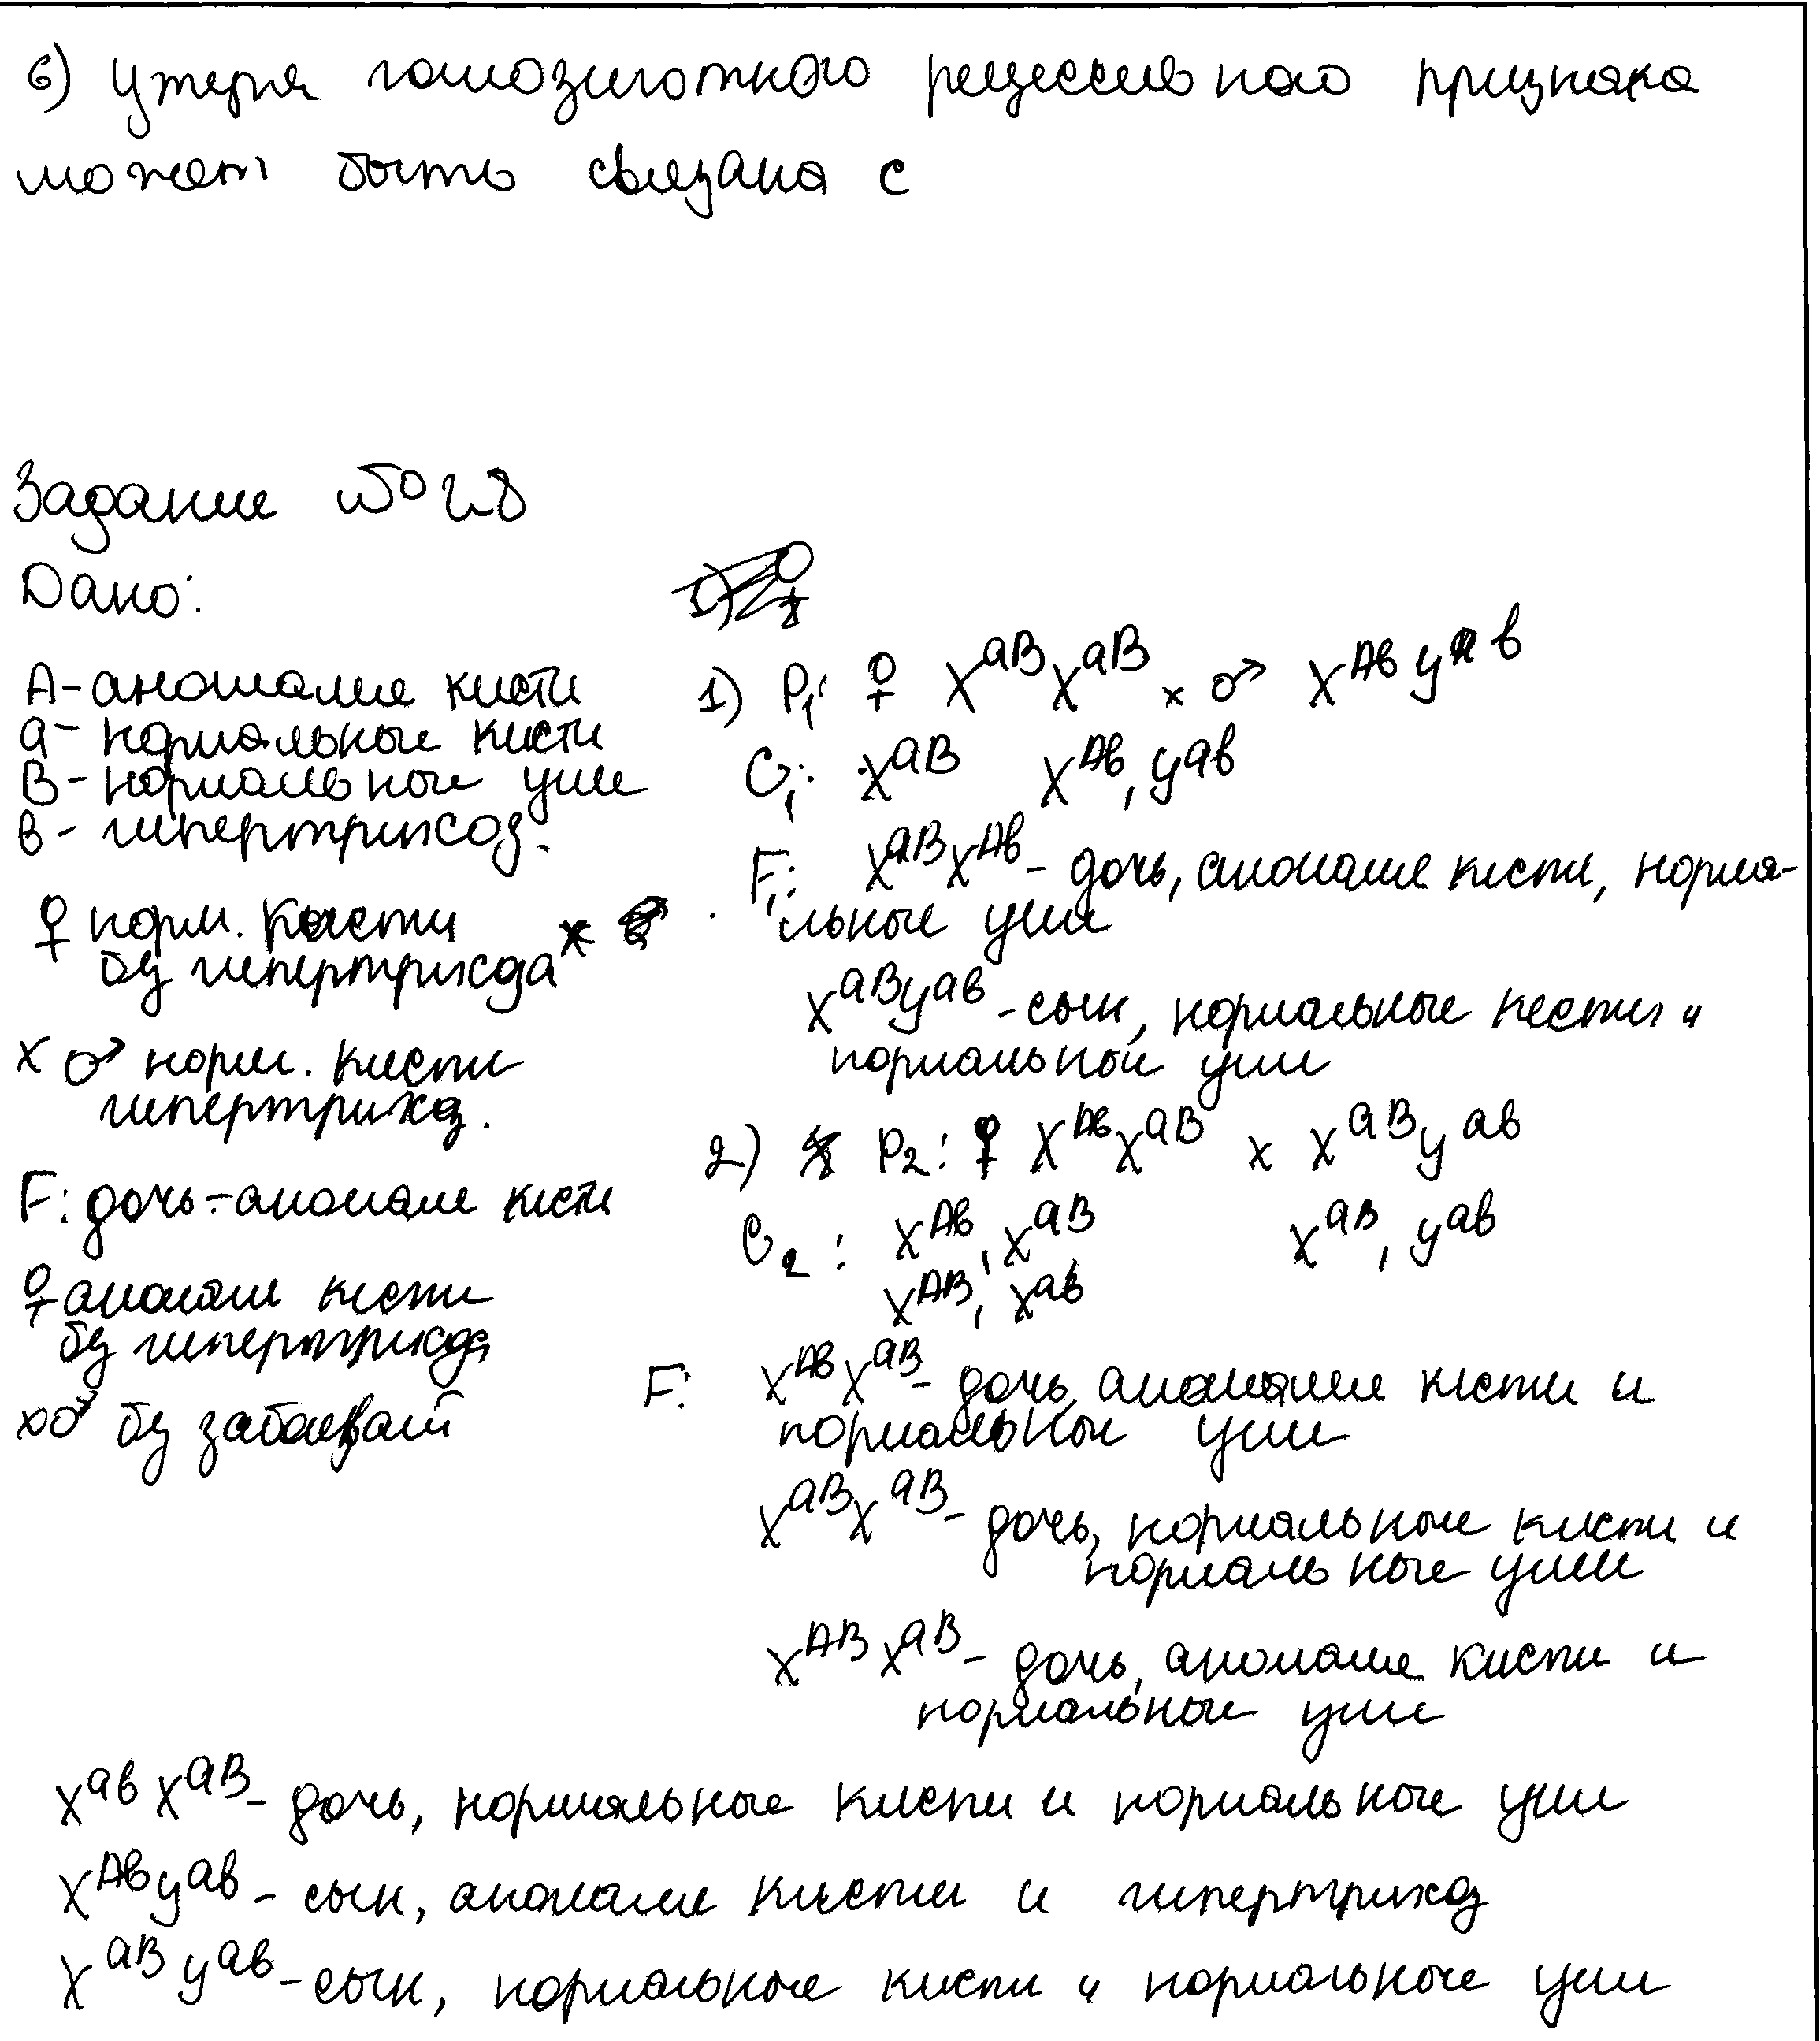 6) утеря гомозиготного рецессивного признака
может быть связана с
Задание №28
Дано:
А - аномалие кисти
а - нормальные кисти
В - нормальные уши
в - гипертрихоз.
♀ норм. кисти
без гипертрихоза
х ♂ норм. кисти
гипертрихоз.
F: дочь - аномалие кисти
♀ аномалие кисти
без гипертрихоза
х♂ без заболеваний
1) P₁: ♀ XᵃᴮXᵃᴮ × ♂ XᴬᵇYᵃᵇ
G₁: Xᵃᴮ Xᴬᵇ, Yᵃᵇ
F₁: XᵃᴮXᴬᵇ - дочь, аномалие кисти, норма-
льные уши
XᵃᴮYᵃᵇ - сын, нормальные кисти и
нормальные уши
2) P₂: ♀ XᴬᵇXᵃᴮ х XᵃᴮYᵃᵇ
G₂: Xᴬᵇ, Xᵃᴮ Xᵃᴮ, Yᵃᵇ
Xᴬᴮ, Xᵃᵇ
F: XᴬᵇXᵃᴮ - дочь, аномалие кисти и
нормальные уши
XᵃᴮXᵃᴮ - дочь, нормальные кисти и
нормальные уши
XᴬᴮXᵃᴮ - дочь, аномалие кисти и
нормальные уши
XᵃᵇXᵃᴮ - дочь, нормальные кисти и нормальные уши
XᴬᵇYᵃᵇ - сын, аномалие кисти и гипертрихоз
XᵃᴮYᵃᵇ - сын, нормальные кисти и нормальные уши